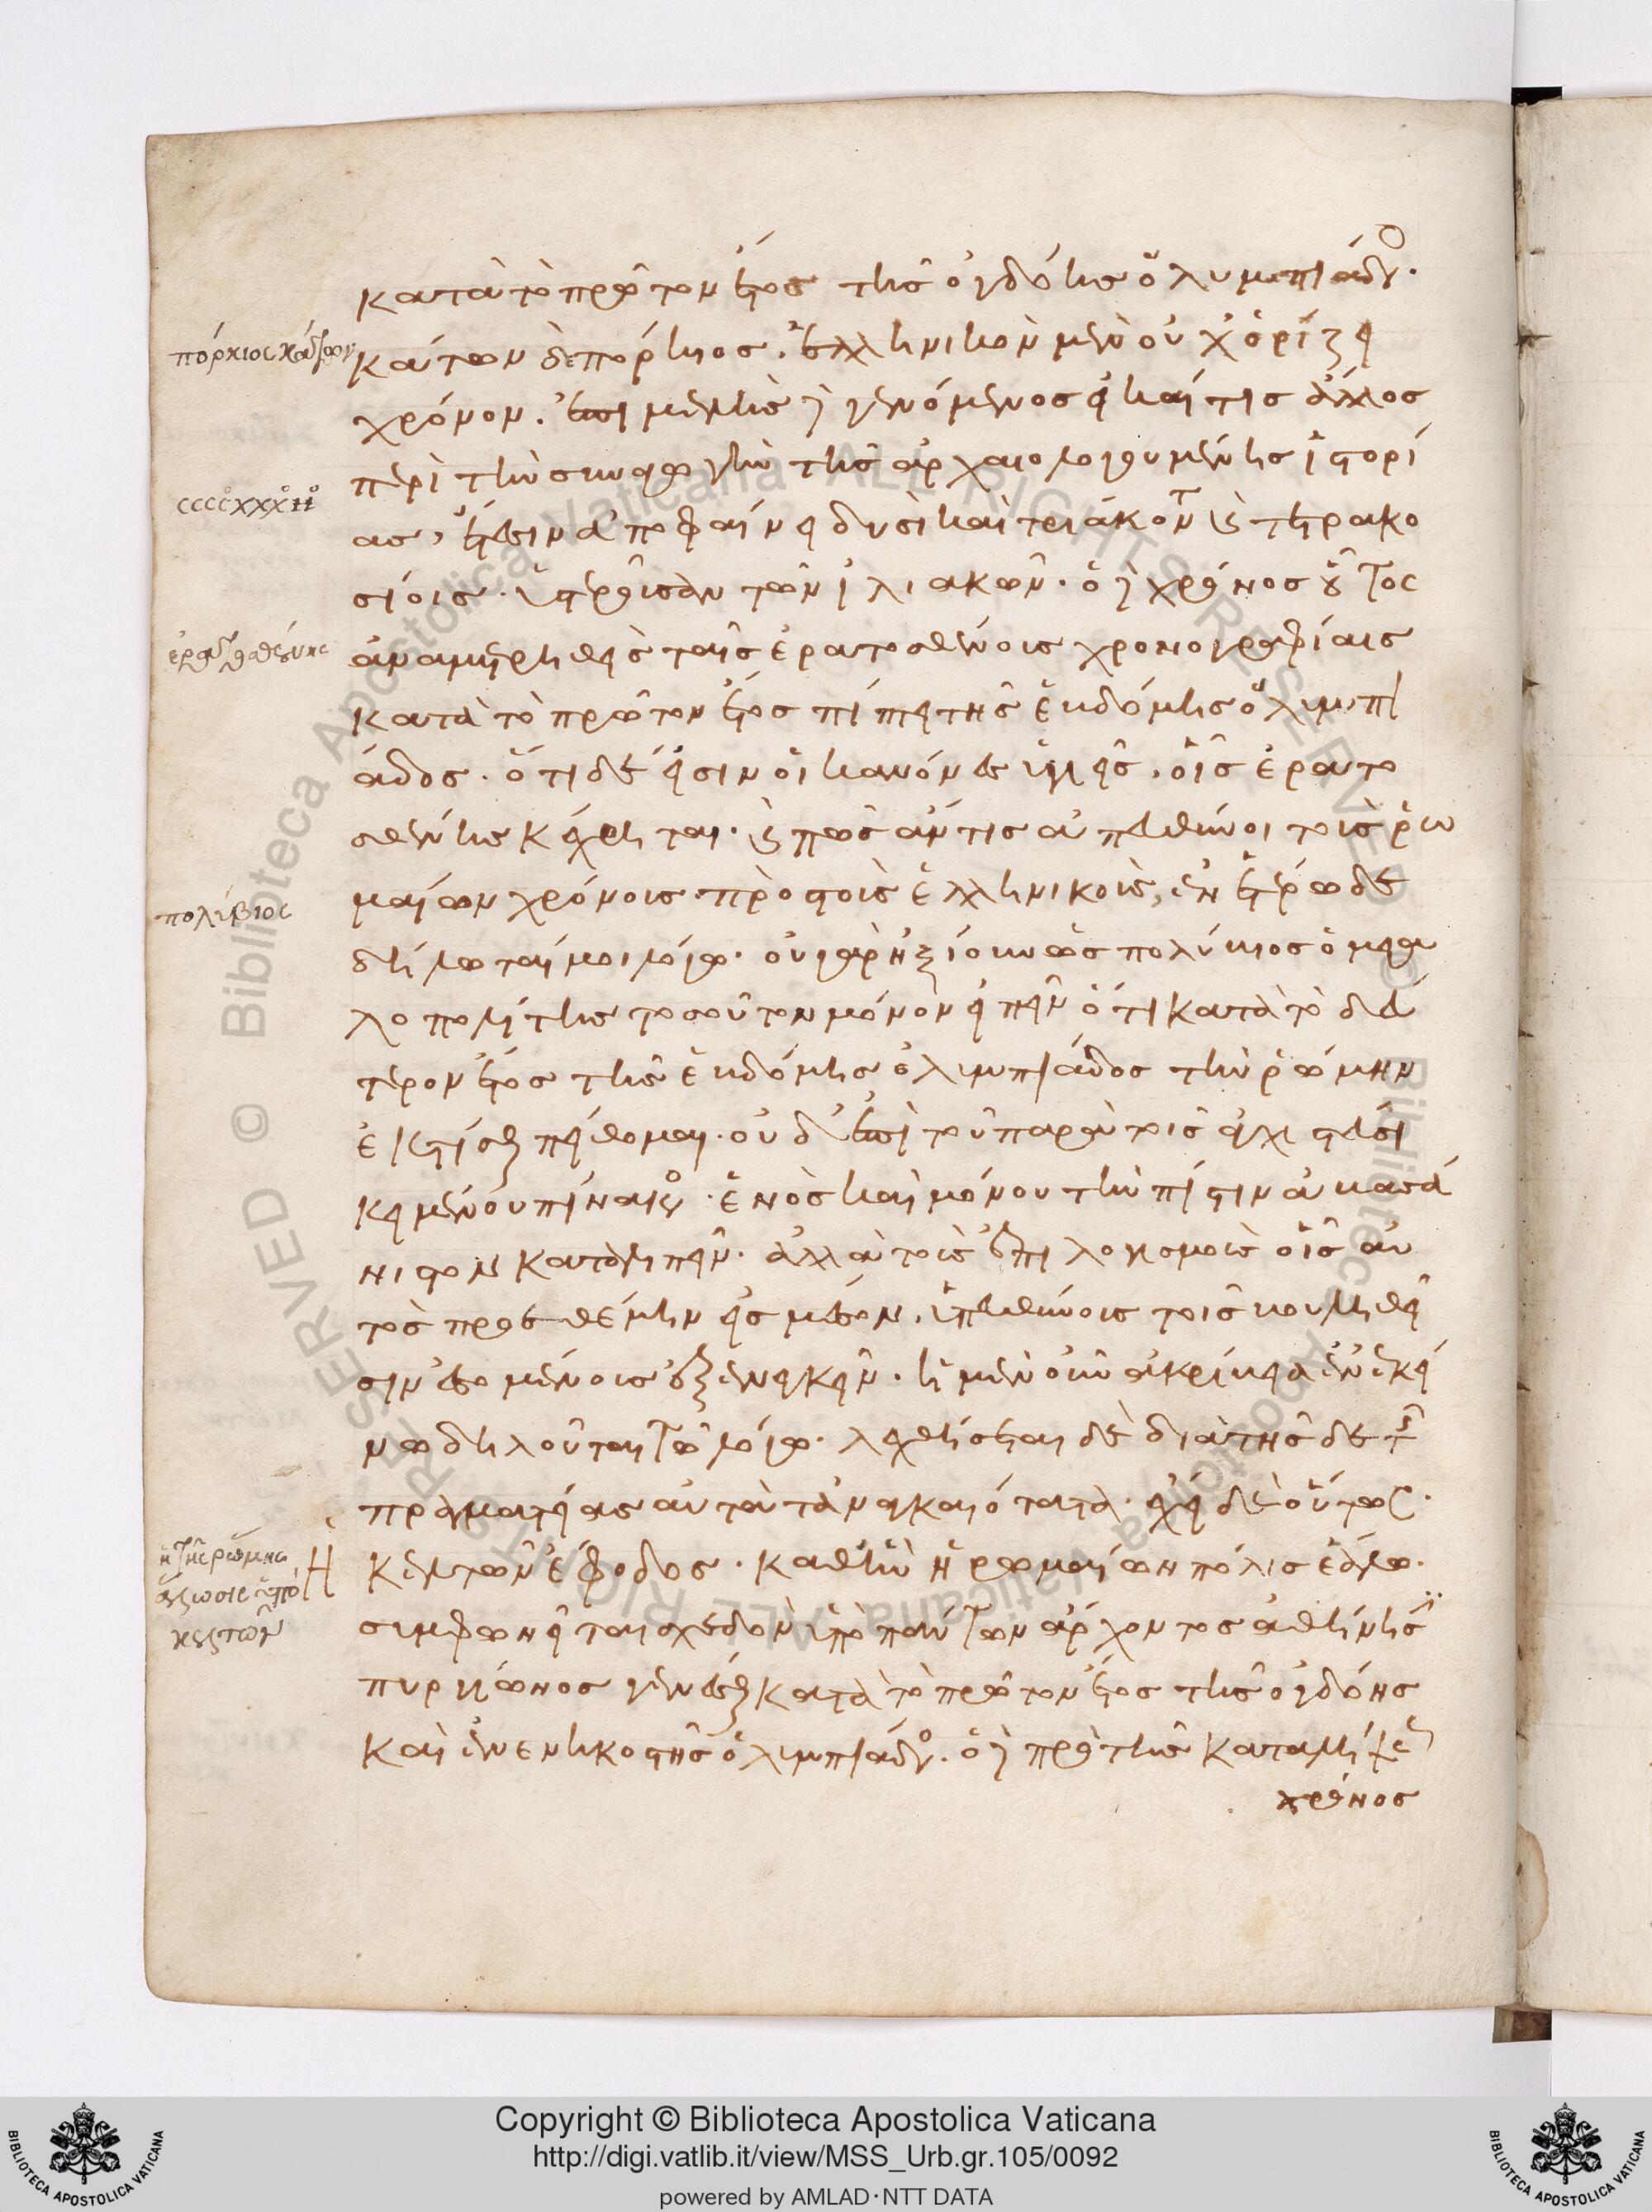 κατὰ τὸ πρῶτον ἔτος τῆς ὀγδόης ὀλυμπιάδος.
πόρκιος κάτων
κάτων δὲ πόρκιος. ἑλληνικὸν μὲν οὐχ ὁρίζει
χρόνον. ἐπιμελὴς δὲ γενόμενος εἰ καί τις ἄλλος
περὶ τὴν συναγωγὴν τῆς ἀρχαιολογουμένης ἱστορί
ccccxxxii
ας, ἔτεσιν ἀποφαίνει δυσὶ καὶ τριάκοντα καὶ τετρακο
σίοις. ὑστεροῦσαν τῶν ἰλιακῶν. ὁ δὲ χρόνος οὗτος
ἐρατοσθένης
ἀναμετρηθεὶς ταῖς ἐρατοσθένοις χρονογραφίαις
κατὰ τὸ πρῶτον ἔτος πίπτει τῆς ἑβδόμης ὀλυμπι
άδος. ὅτι δέ εἰσιν οἱ κανόνες ὑγιεῖς. οἷς ἐρατο
σθένης κέχρηται. καὶ πῶς ἄν τις ἀπευθύνοι τοὺς ῥω
μαίων χρόνους πρὸς τοὺς ἑλληνικούς, ἐν ἑτέρω δε
πολύβιος
δήλωταί μοι λόγω. οὐ γὰρ ἠξίουν ὡς πολύβιος ὁ μεγα
λοπολίτης τοσοῦτον μόνον εἰπεῖν ὅτι κατὰ τὸ δεύ
τερον ἔτος τῆς ἑβδόμης ὀλυμπιάδος τὴν ῥώμην
ἐκτίσθαι πείθομαι. οὐδ' ἐπὶ τοῦ παρὰ τοῖς ἀγχιστεῦσι
κειμένου πίνακος. ἑνὸς καὶ μόνου τὴν πίστιν ἀβασά
νιστον καταλιπεῖν. ἀλλὰ τοὺς ἐπιλογισμοὺς οἷς αὐ
τὸς προσεθέμην εἰς μέσον, ὑπευθύνους τοῖς βουληθεῖ
σιν ἐσομένους ἐξενεγκεῖν. ἡ μὲν οὖν ἀκρίβεια ἐν ἐκεί
νω δηλοῦται τῶ λόγω. λεχθήσεται δὲ διὰ τῆσδε τῆς
πραγματείας αὐτὰ τὰ ἀναγκαιότατα. ἔχει δὲ οὕτως.
ἡ τῆς ῥώμης
ἅλωσις ὑπὸ
κελτῶν
Η κελτῶν ἔφοδος. καθ' ἣν ἡ ῥωμαίων πόλις ἑάλω.
συμφωνεῖται σχεδὸν ὑπὸ πάντων ἄρχοντος ἀθήνησι
πυργίωνος γενέσθαι κατὰ τὸ πρῶτον ἔτος τῆς ὀγδόης
καὶ ἐνενηκοστῆς ὀλυμπιάδος. ὁ δὲ πρὸ τῆς καταλήψεως
χρόνος
Copyright © Biblioteca Apostolica Vaticana
http://digi.vatlib.it/view/MSS_Urb.gr.105/0092
powered by AMLAD·NTT DATA